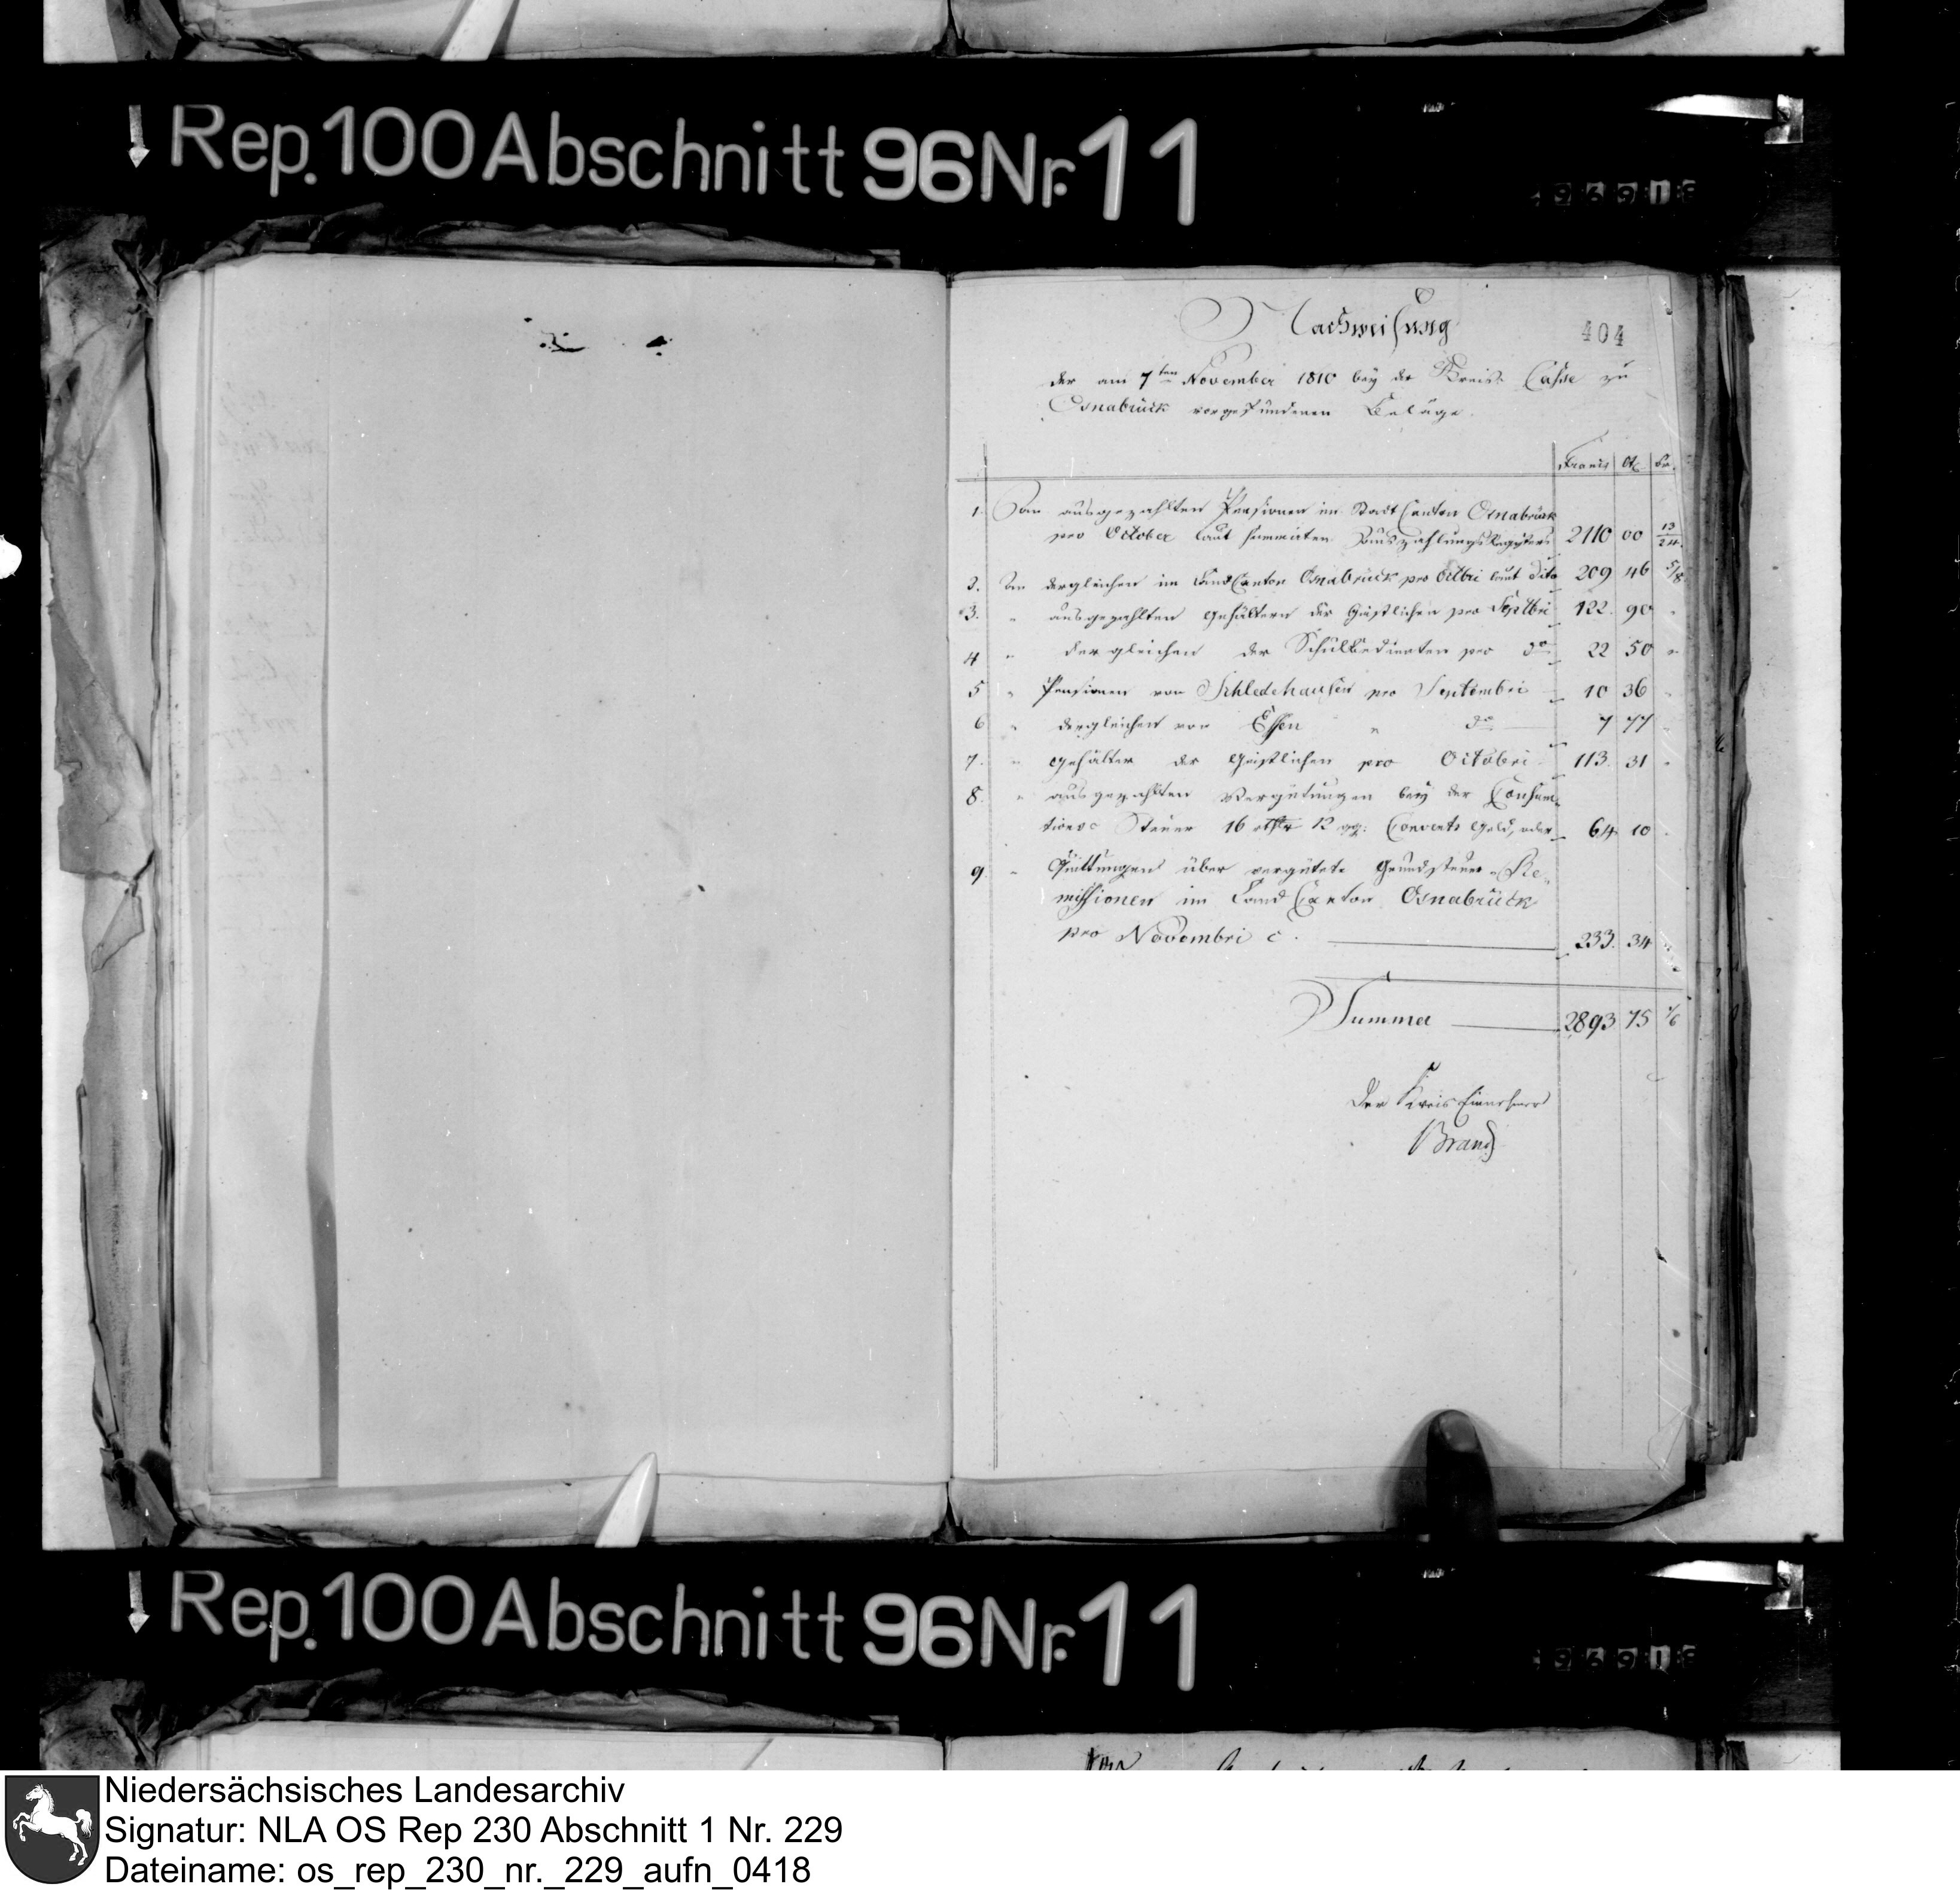 Rep. 100 Abschnitt 96 Nr. 11
Nachweisung
404
der am 7ten November 1810 bey der Kreis Casse zu
Osnabrück vorgefundenen Beläge.
Francs Ct. Br.
1. An ausgezahlten Pensionen im Stadt Canton Osnabrück
pro October laut summirten Auszahlungs Registers 2110 00 13/24
2. An dergleichen im Land Canton Osnabrück pro Octbri laut dito 209 46 5/8
3. " ausgezahlten Gehältern der Geistlichen pro Septbri 122. 90 "
4 " dergleichen der Schulbedienten pro do 22 50 "
5 " Pensionen von Schledehausen pro Septembri 10 36 "
6 " dergleichen von Essen " do 7 77 "
7. " Gehälter der Geistlichen pro Octobri 113. 31 "
8. " ausgezahlten Vergütungen bey der Consum-
tions Steuer 16 rthlr 12 ggr. Convents Geld, oder 64 10 "
9. " Quittungen über vergütete Grundsteuer-Re-
missionen im Land Canton Osnabrück
pro Novembri c. 233. 34 "
Summa 2893 75 1/6
Der Kreis Einnehmer
Brand
Rep. 100 Abschnitt 96 Nr. 11
Niedersächsisches Landesarchiv
Signatur: NLA OS Rep 230 Abschnitt 1 Nr. 229
Dateiname: os_rep_230_nr._229_aufn_0418